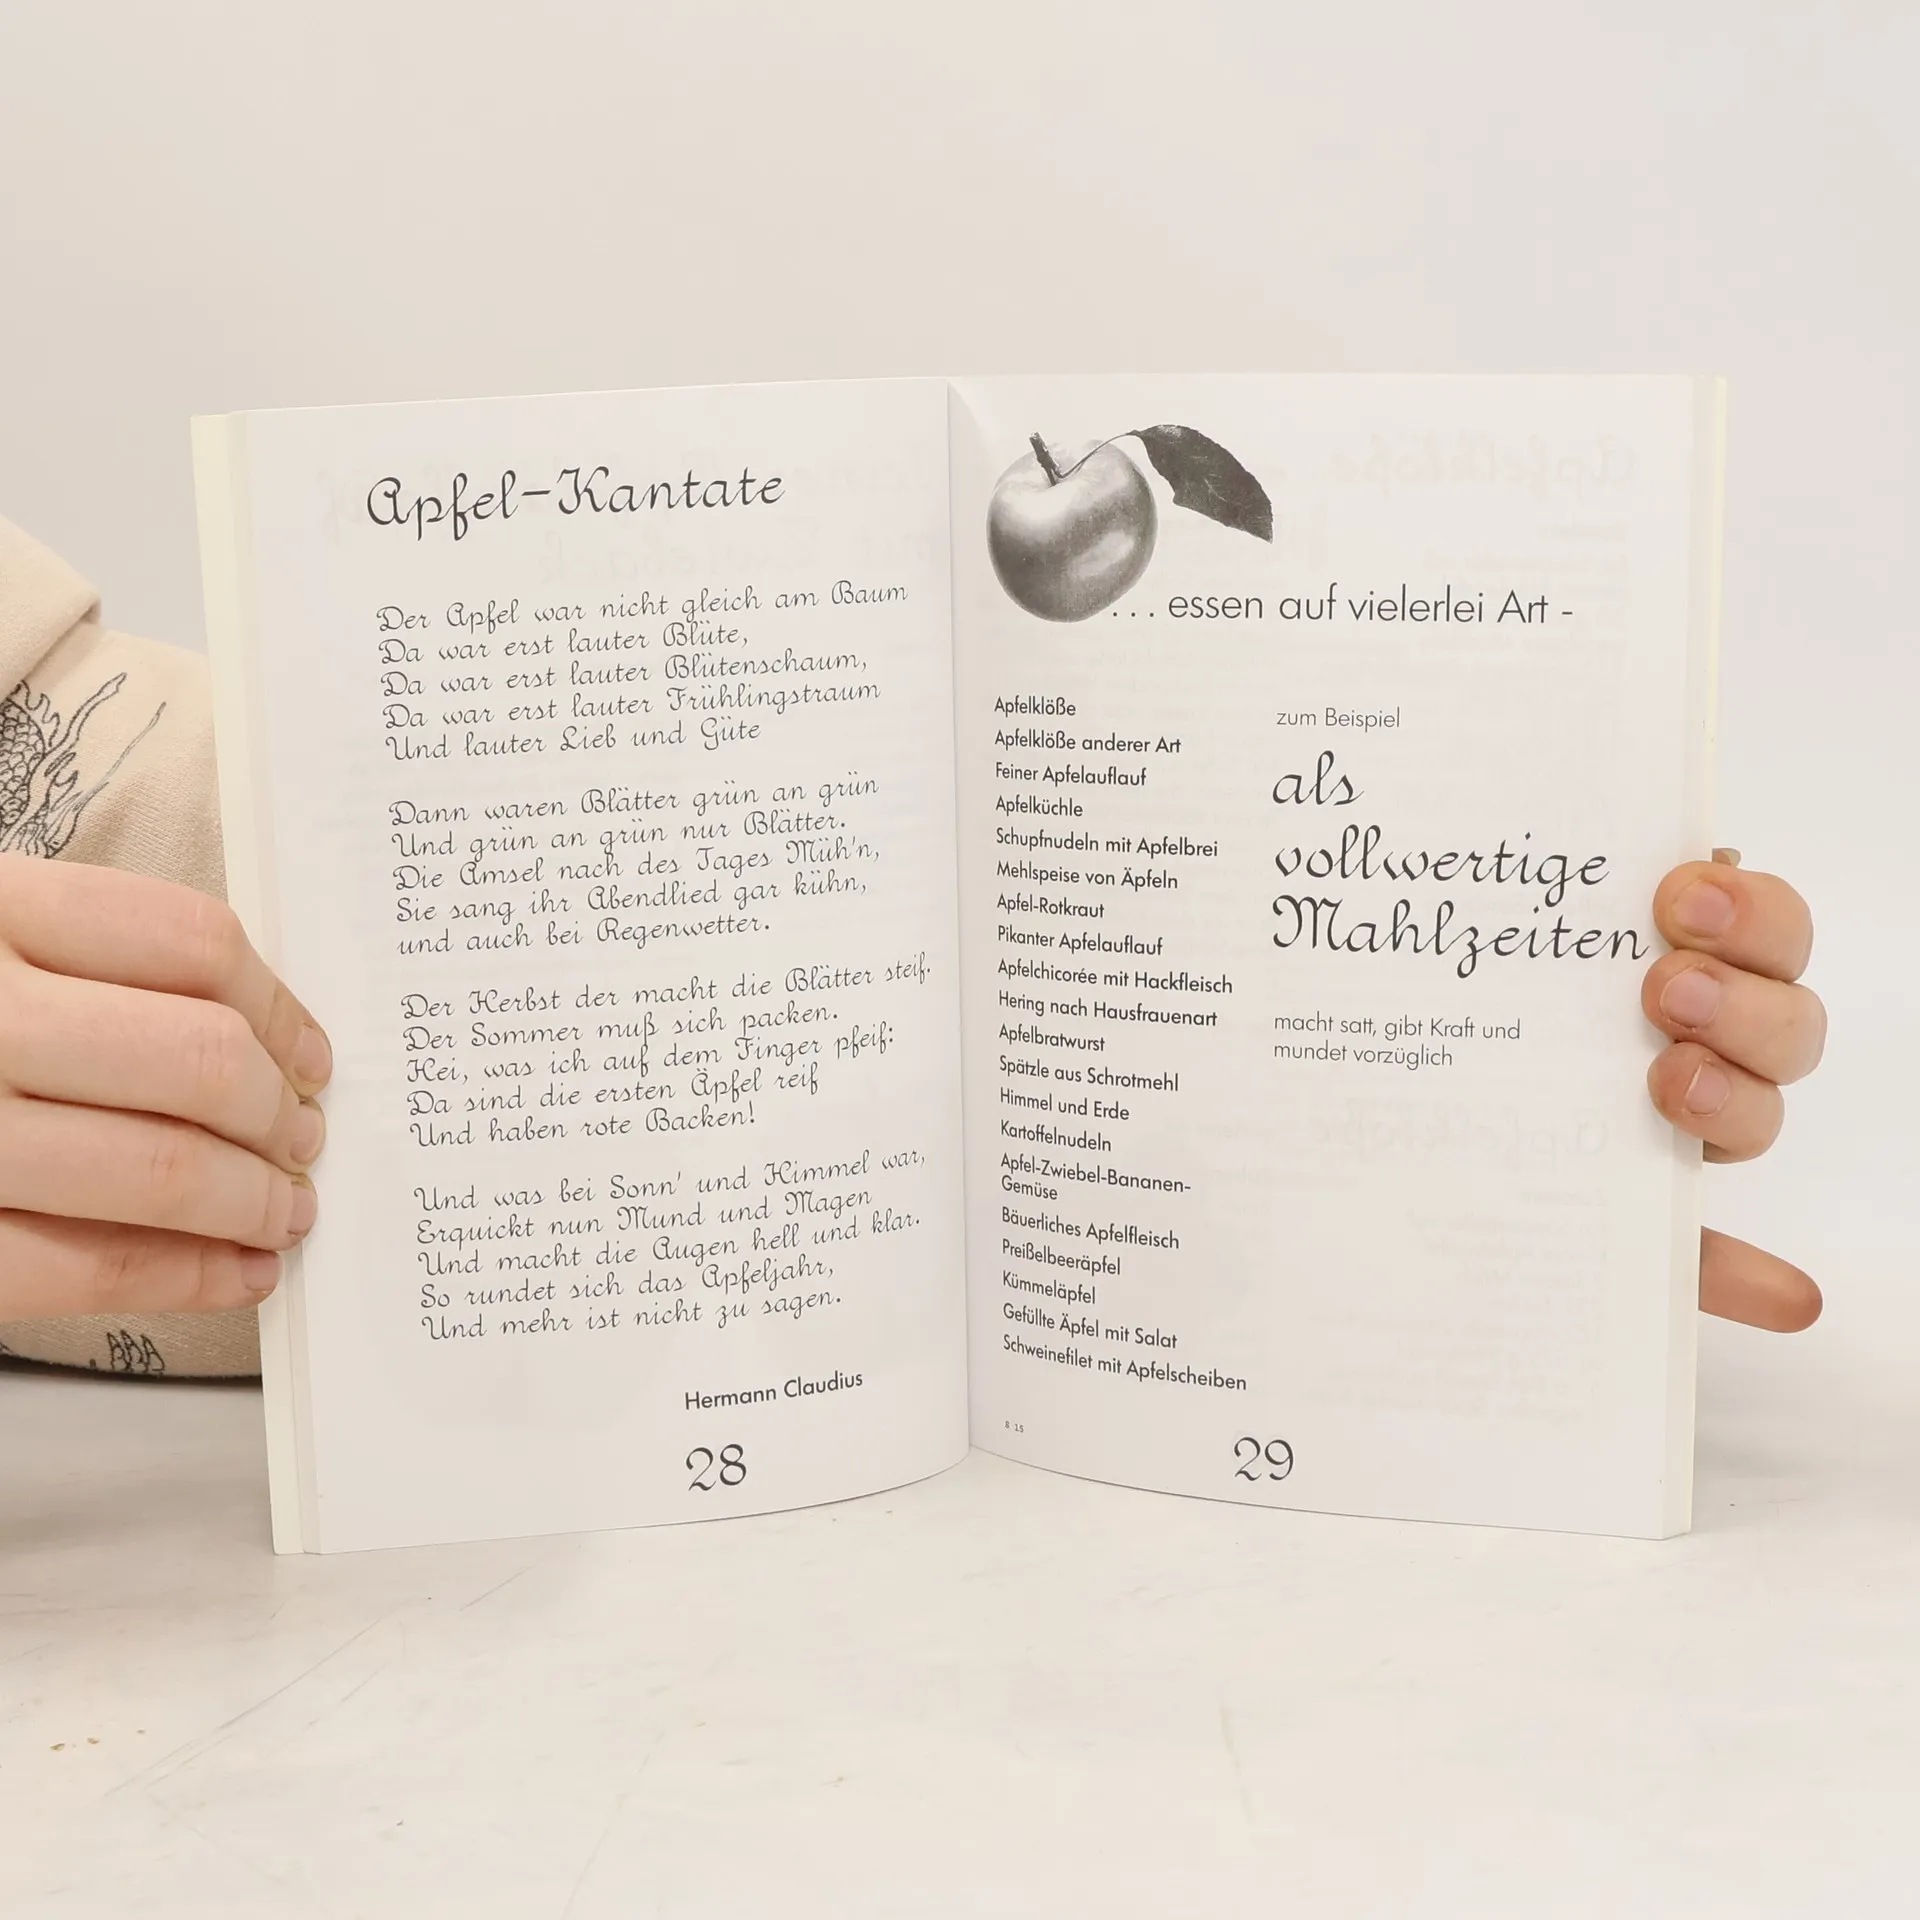 Apfel-Kantate
Der Apfel war nicht gleich am Baum
Da war erst lauter Blüte,
Da war erst lauter Blütenschaum,
Da war erst lauter Frühlingstraum
Und lauter Lieb und Güte
Dann waren Blätter grün an grün
Und grün an grün nur Blätter.
Die Amsel nach des Tages Müh'n,
Sie sang ihr Abendlied gar kühn,
und auch bei Regenwetter.
Der Herbst der macht die Blätter steif.
Der Sommer muß sich packen.
Hei, was ich auf dem Finger pfeif:
Da sind die ersten Äpfel reif
Und haben rote Backen!
Und was bei Sonn' und Himmel war,
Erquickt nun Mund und Magen
Und macht die Augen hell und klar.
So rundet sich das Apfeljahr,
Und mehr ist nicht zu sagen.
Hermann Claudius
28
... essen auf vielerlei Art -
Apfelklöße
Apfelklöße anderer Art
Feiner Apfelauflauf
Apfelküchle
Schupfnudeln mit Apfelbrei
Mehlspeise von Äpfeln
Apfel-Rotkraut
Pikanter Apfelauflauf
Apfelchicorée mit Hackfleisch
Hering nach Hausfrauenart
Apfelbratwurst
Spätzle aus Schrotmehl
Himmel und Erde
Kartoffelnudeln
Apfel-Zwiebel-Bananen-
Gemüse
Bäuerliches Apfelfleisch
Preißelbeeräpfel
Kümmeläpfel
Gefüllte Äpfel mit Salat
Schweinefilet mit Apfelscheiben
zum Beispiel
als
vollwertige
Mahlzeiten
macht satt, gibt Kraft und
mundet vorzüglich
8 15
29